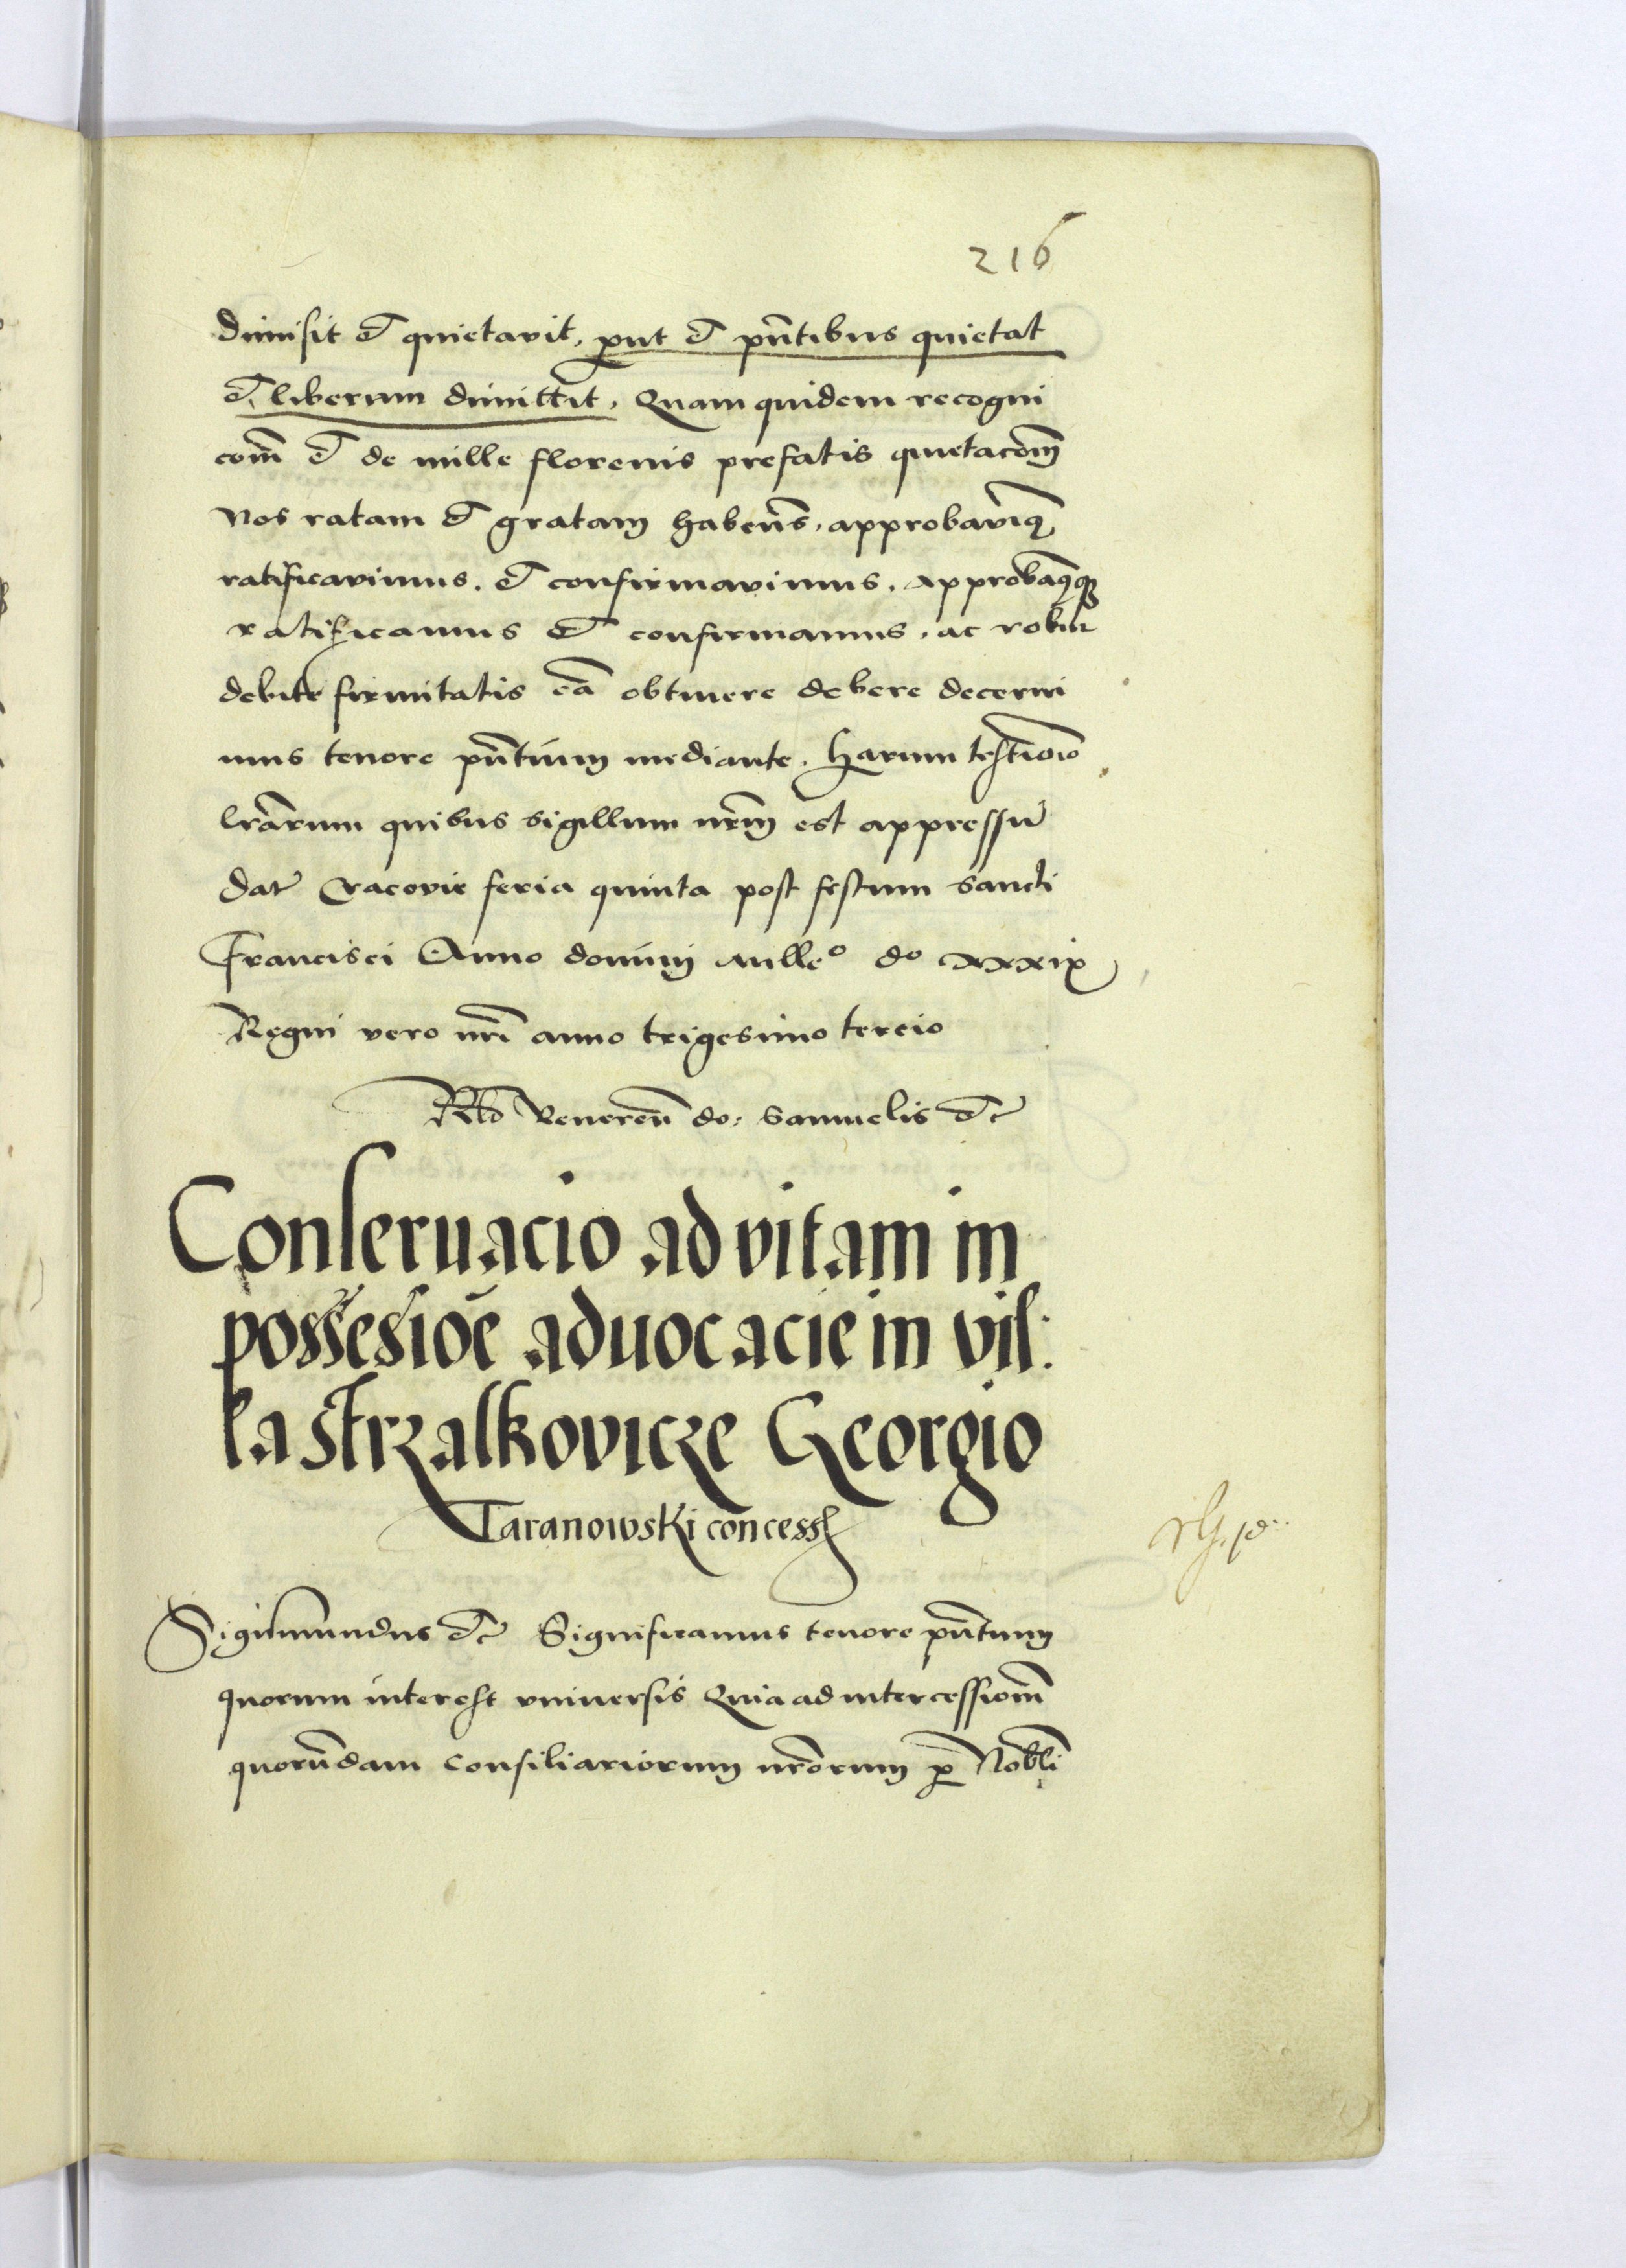 216
dimisit et quietavit, ꝓut et pñtibus quietat
et liberum dimittit, Quam quidem recogni
com̃ et de mille florenis prefatis quietacom̃
Nos ratam et gratam habeñs, approbavimꝰ
ratificavimus, et confirmavimus, approbamꝰqꝫ
ratificamus et confirmamus, ac robur
debite firmitatis eã obtinere debere decerni
mus tenore pñtium mediante, Harum testimõio
lr̃arum quibus sigillum nr̃m est appressũ
Dat̃ Cracovie feria quinta post festum sancti
Francisci Anno domini mille° d° xxxix
Regni vero nr̃i anno trigesimo tercio
Rᵗᵒ Venereñ do: Samuelis etc
Conseruacio ad vitam in
possesioẽ aduocacie in vil:
la strzalkovicze Georgio
Taranowski concess
Sigismundus etc Significamus tenore pñtium
quorum interest vniversis Quia ad intercessiom̃
quorũdam consiliariorum nr̃orum ꝓ Nobli